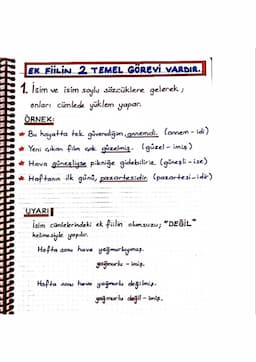 EK FİİLİN 2 TEMEL GÖREVİ VARDIR.
1. İsim ve isim soylu sözcüklere gelerek,
onları cümlede yüklem yapar.
ÖRNEK:
* Bu hayatta tek güvendiğim, annemdi. (annem - idi)
* Yeni çıkan film çok güzelmiş. (güzel - imiş)
* Hava güneşliyse pikniğe gidebiliriz. (güneşli - ise)
* Haftanın ilk günü, pazartesidir. (pazartesi-idir)
UYARI
İsim cümlelerindeki ek fiilin olumsuzu; "DEĞİL"
kelimesiyle yapılır.
Hafta sonu hava yağmurluymuş.
yağmurlu - imiş.
Hafta sonu hava yağmurlu değilmiş.
yağmurlu değil - imiş.